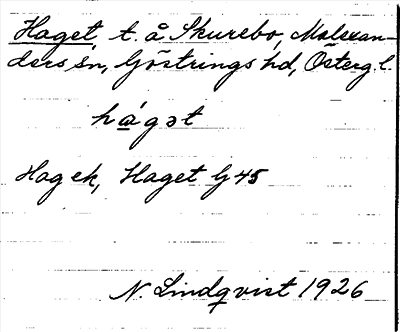 Haget, t. å Skurebo, Malexan-
ders sn, Göstrings hd, Österg.l.
hágət
Hag ek, Haget G 45
N. Lindqvist 1926